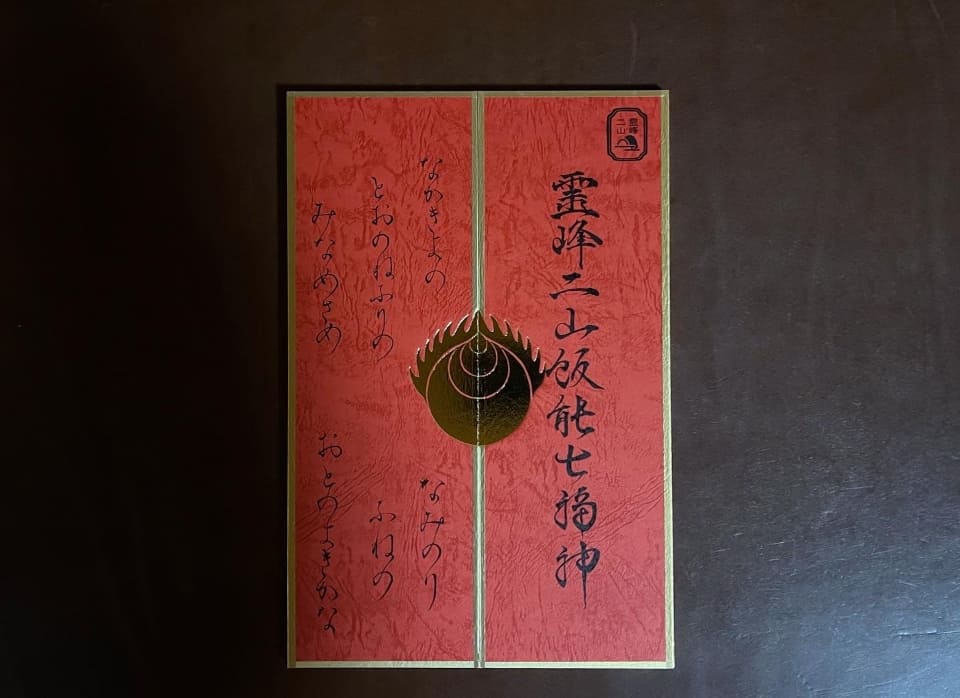 霊峰
二山
霊峰二山飯能七福神
なかきよの
とおのねふりの
みなめさめ
なみのり
ふねの
おとのよきかな